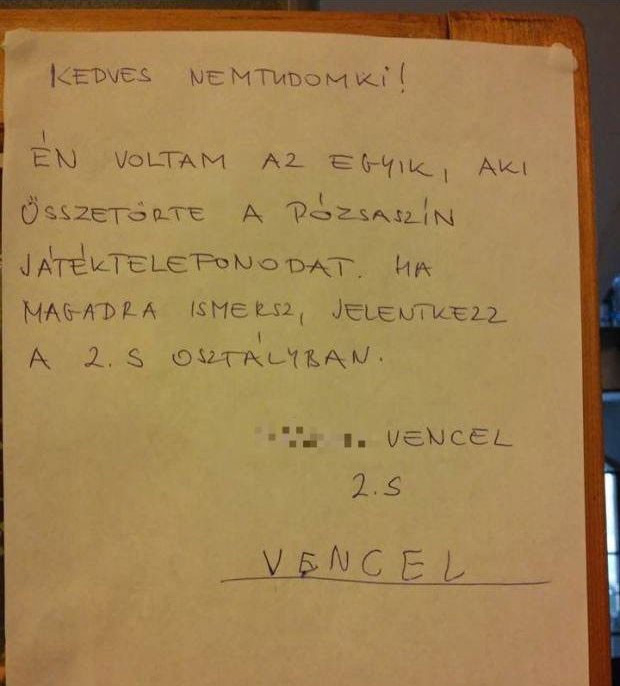 KEDVES NEMTUDOMKI!
ÉN VOLTAM AZ EGYIK, AKI
ÖSSZETÖRTE A RÓZSASZÍN
JÁTÉKTELEFONODAT. HA
MAGADRA ISMERSZ, JELENTKEZZ
A 2.S OSZTÁLYBAN.
VENCEL
2.S
VENCEL